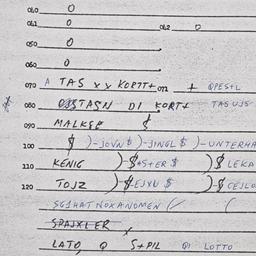 040 0
041 0 042 0
050 0
060 0
070 A TAS xx KORTT+ 071 + QPESTL
080 TASN DI KORT+ TASUJS
090 MALKSE $
100 $ )-JOVN $ )-JINGL $ )-UNTERHA
110 KENIG )$ +S+ER $ )$ LEKA
120 TOJZ )$-EJXU $ )-$ CEJLO
SG1HATNOKANOMEN
SPAJXLER
LATO, Q S+PIL QI LOTTO